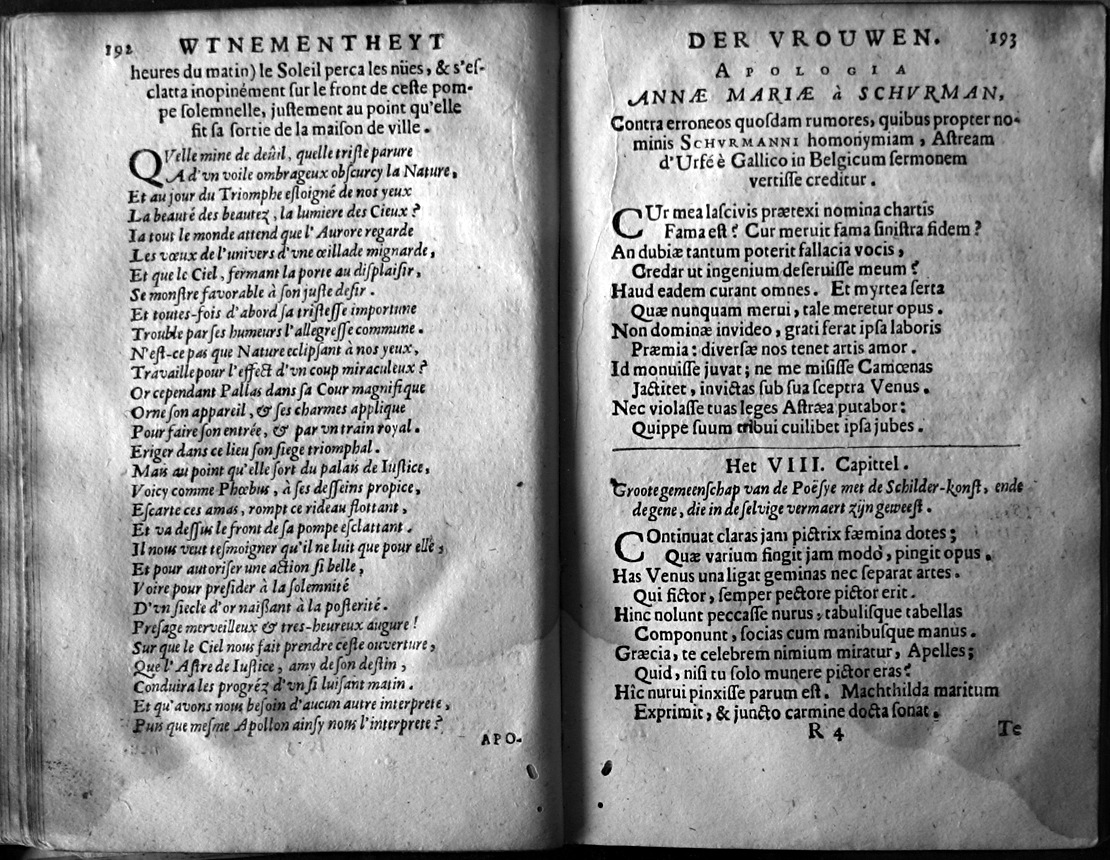 192 WTNEMENTHEYT
heures du matin) le Soleil perca les nües, & s'eſ-
clatta inopinément ſur le front de ceſte pom-
pe ſolemnelle, juſtement au point qu'elle
fit ſa ſortie de la maiſon de ville.
QVelle mine de deüil, quelle triſte parure
A d'vn voile ombrageux obſcurcy la Nature,
Et au jour du Triomphe eſloigné de nos yeux
La beauté des beautez, la lumiere des Cieux?
Ia tout le monde attend que l'Aurore regarde
Les vœux de l'univers d'vne œillade mignarde,
Et que le Ciel, fermant la porte au diſplaiſir,
Se monſtre favorable à ſon juſte deſir.
Et toutes-fois d'abord ſa triſteſſe importune
Trouble par ſes humeurs l'allegreſſe commune.
N'eſt-ce pas que Nature eclipſant à nos yeux,
Travaille pour l'effect d'vn coup miraculeux?
Or cependant Pallas dans ſa Cour magnifique
Orne ſon appareil, & ſes charmes applique
Pour faire ſon entrée, & par vn train royal.
Eriger dans ce lieu ſon ſiege triomphal.
Mais au point qu'elle ſort du palais de Iuſtice,
Voicy comme Phœbus, à ſes deſſeins propice,
Eſcarte ces amas, rompt ce rideau flottant,
Et va deſſus le front de ſa pompe eſclattant.
Il nous veut teſmoigner qu'il ne luit que pour elle,
Et pour autoriſer une action ſi belle,
Voire pour preſider à la ſolemnité
D'vn ſiecle d'or naißant à la poſterité.
Preſage merveilleux & tres-heureux augure!
Sur que le Ciel nous fait prendre ceſte ouverture,
Que l'Aſtre de Iuſtice, amy de ſon deſtin,
Conduira les progréz d'vn ſi luiſant matin.
Et qu'avons nous beſoin d'aucun autre interprete,
Puis que meſme Apollon ainſy nous l'interprete?
APO-
DER VROUWEN. 193
APOLOGIA
ANNÆ MARIÆ à SCHVRMAN,
Contra erroneos quoſdam rumores, quibus propter no-
minis SCHVRMANNI homonymiam, Aſtream
d'Urfé è Gallico in Belgicum ſermonem
vertiſſe creditur.
CUr mea laſcivis prætexi nomina chartis
Fama eſt? Cur meruit fama ſiniſtra fidem?
An dubiæ tantum poterit fallacia vocis,
Credar ut ingenium deſeruiſſe meum?
Haud eadem curant omnes. Et myrtea ſerta
Quæ nunquam merui, tale meretur opus.
Non dominæ invideo, grati ferat ipſa laboris
Præmia: diverſæ nos tenet artis amor.
Id monuiſſe juvat; ne me miſiſſe Camœnas
Jactitet, invictas ſub ſua ſceptra Venus.
Nec violaſſe tuas leges Aſtræa putabor:
Quippe ſuum tribui cuilibet ipſa jubes.
Het VIII. Capittel.
Groote gemeenſchap van de Poëſye met de Schilder-konſt, ende
degene, die in de ſelvige vermaert zijn geweeſt.
COntinuat claras jam pictrix fæmina dotes;
Quæ varium fingit jam modò, pingit opus.
Has Venus una ligat geminas nec ſeparat artes.
Qui fictor, ſemper pectore pictor erit.
Hinc nolunt peccaſſe nurus, tabuliſque tabellas
Componunt, ſocias cum manibuſque manus.
Græcia, te celebrem nimium miratur, Apelles;
Quid, niſi tu ſolo munere pictor eras?
Hîc nurui pinxiſſe parum eſt. Machthilda maritum
Exprimit, & juncto carmine docta ſonat.
R 4 Te